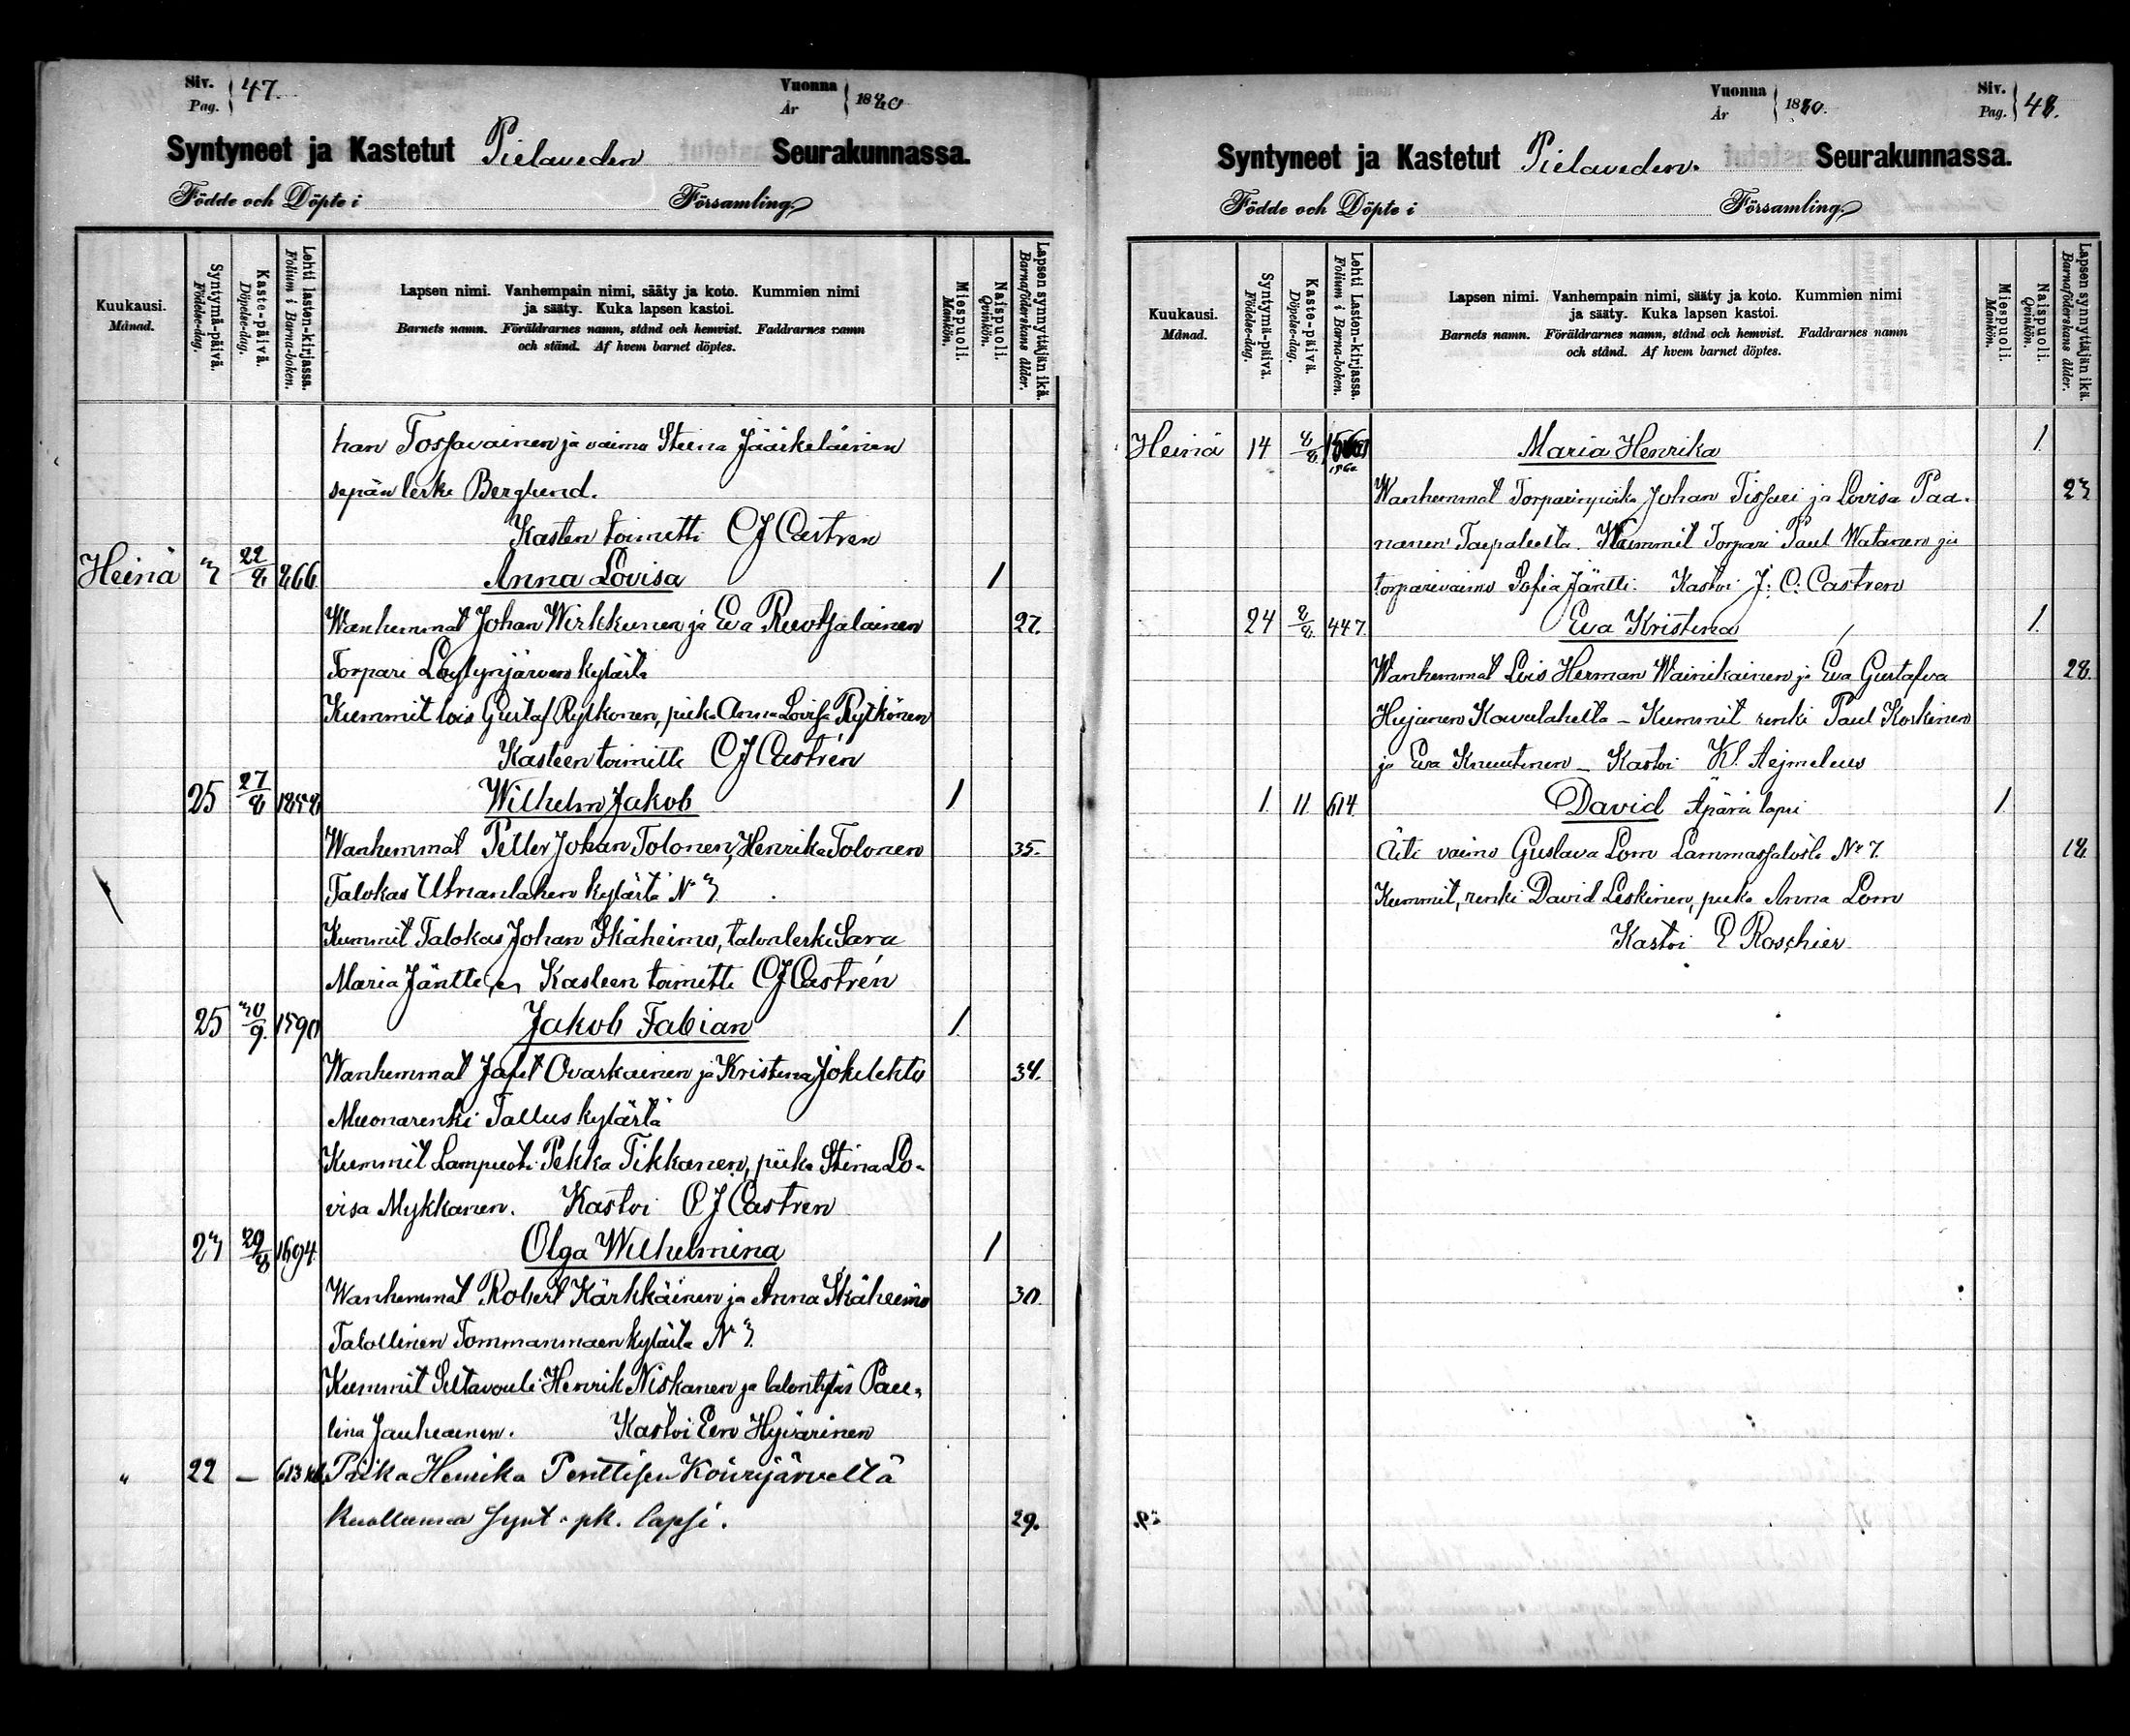 Siv. Pag. 47.
Vuonna År 1880
Syntyneet ja Kastetut Pielaveden Seurakunnassa.
Födde och Döpte i Församling.
Kuukausi. Månad.
Syntymä-päivä. Födelse-dag.
Kaste-päivä. Döpelse-dag.
Lehti lasten-kirjassa. Folium i Barna-boken.
Lapsen nimi. Vanhempain nimi, sääty ja koto. Kummien nimi
ja sääty. Kuka lapsen kastoi.
Barnets namn. Föräldrarnes namn, stånd och hemvist. Faddrarnes namn
och stånd. Af hvem barnet döptes.
Miespuoli. Mankön.
Naispuoli. Qvinkön.
Lapsen synnyttäjän ikä. Barnaföderskans ålder.
han Tossavainen ja vaimo Steena Jääskeläinen
sepän leski Berglund.
Kasten toimitti CJ Castren
Heinä 3 22/8 266 Anna Lovisa 1
Wanhemmat Johan Wirkkunen ja Eva Ruotsalainen 27.
Torpari Löytynjärven kylästä
Kummit lois Gustaf Rytkonen, piika Anna Lovisa Rytkönen
Kasteen toimitti CJ Castrén
25 27/8 1858 Wilhelm Jakob 1
Wanhemmat Petter Johan Tolonen, Henrika Tolonen 35.
Talokas Utrianlahen kylästä No 3
Kummit Talokas Johan Skäheimo, talonleski Sara
Maria Jäntti Kasteen toimitti CJ Castrén
25 30/9. 1590 Jakob Fabian 1.
Wanhemmat Jafet Ovaskainen ja Kristina Jokelehto 34.
Muonarenki Tallus kylästä
Kummit Lampuoti Pekka Tikkanen, piika Stina Lo-
visa Mykkanen. Kastoi CJ Castren
23 29/8 1694 Olga Wilhelmina 1
Wanhemmat Robert Kärkkäinen ja Anna Skäheimo 30.
Talollinen Tommanmäen kylästä No 3.
Kummit Siltavouti Henrik Niskanen ja talontytär Pau-
lina Jauhiainen. Kastoi Eero Hyvärinen
" 22 — 613 Piika Henrika Penttisen Koivujärveltä
kuollunna synt. pk. lapsi. 29.
Vuonna År 1880.
Siv. Pag. 48.
Syntyneet ja Kastetut Pielaveden. Seurakunnassa.
Födde och Döpte i Församling.
Kuukausi. Månad.
Syntymä-päivä. Födelse-dag.
Kaste-päivä. Döpelse-dag.
Lehti Lasten-kirjassa. Folium i Barna-boken.
Lapsen nimi. Vanhempain nimi, sääty ja koto. Kummien nimi
ja sääty. Kuka lapsen kastoi.
Barnets namn. Föräldrarnes namn, stånd och hemvist. Faddrarnes namn
och stånd. Af hvem barnet döptes.
Miespuoli. Mankön.
Naispuoli. Qvinkön.
Lapsen synnyttäjän ikä. Barnaföderskans ålder.
Heinä 14 8/8 Maria Henrika 1.
Wanhemmat Torparinpoika Johan Tissari ja Lovisa Paa- 23
nanen Taipaleelta. Kummit Torpari Paul Watanen ja
torparivaimo Sofia Jäntti. Kastoi J: C: Castren
24 8/8 447. Eva Kristina 1.
Wanhemmat Lois Herman Wainikainen ja Eva Gustafva 28.
Hujanen Kawulahelta – Kummit renki Paul Koskinen
ja Eva Knuutinen – Kastoi Kl. Aejmeleus
1. 11. 614. David Äpärä lapsi 1.
Äiti vaimo Gustava Lom Lammassalosta No 7. 18.
Kummit, renki David Leskinen, piika Anna Lom
Kastoi E Roschier